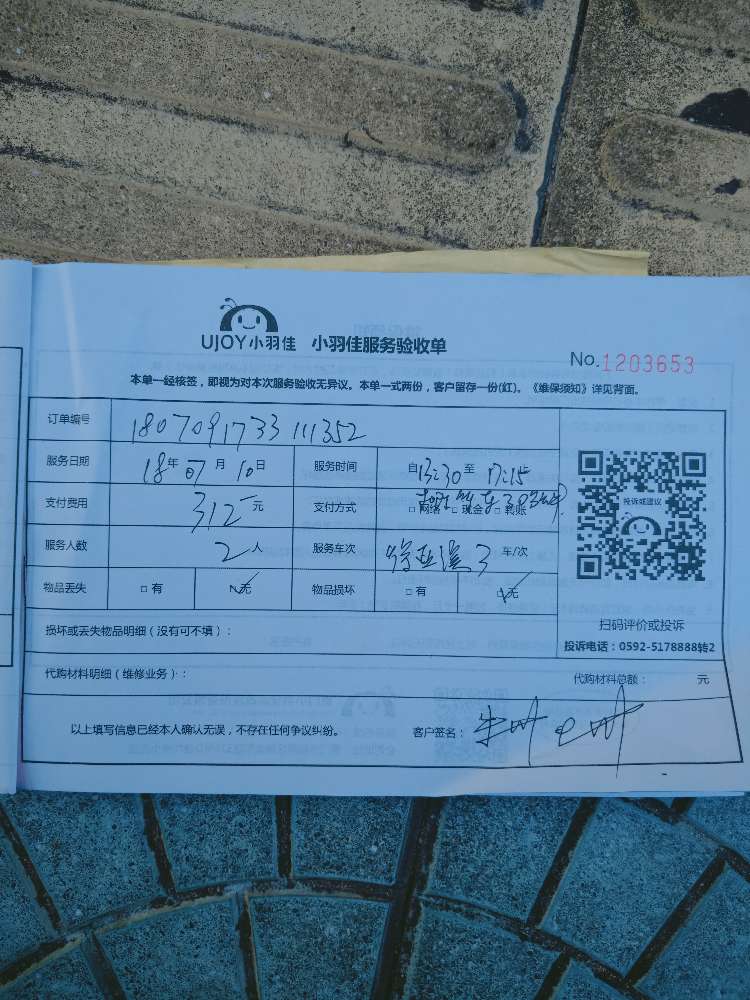 UJOY小羽佳 小羽佳服务验收单
No.1203653
本单一经核签，即视为对本次服务验收无异议。本单一式两份，客户留存一份(红)。《维保须知》详见背面。
订单编号 180709173311352
服务日期 18年07月10日 服务时间 自13:30至17:15
支付费用 312元 支付方式 □网络 □现金 □转账
服务人数 2人 服务车次 3 车/次
物品丢失 □有 □无 物品损坏 □有 □无
投诉或建议
扫码评价或投诉
投诉电话：0592-5178888转2
损坏或丢失物品明细（没有可不填）：
代购材料明细（维修业务）： 代购材料总额： 元
以上填写信息已经本人确认无误，不存在任何争议纠纷。 客户签名：